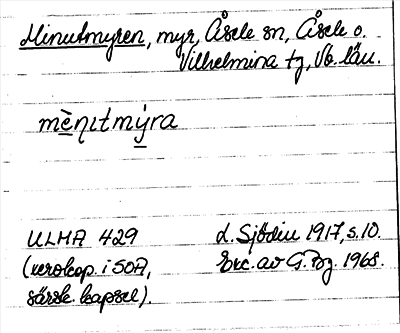 Minutmyren, myr, Åsele sn, Åsele o.
Vilhelmina tg, Vb. län.
mènıtmýra
ULMA 429
(xerokop. i SOA,
särsk. kapsel).
L. Sjödin 1917, s. 10.
Exc. av G. Bg. 1968.